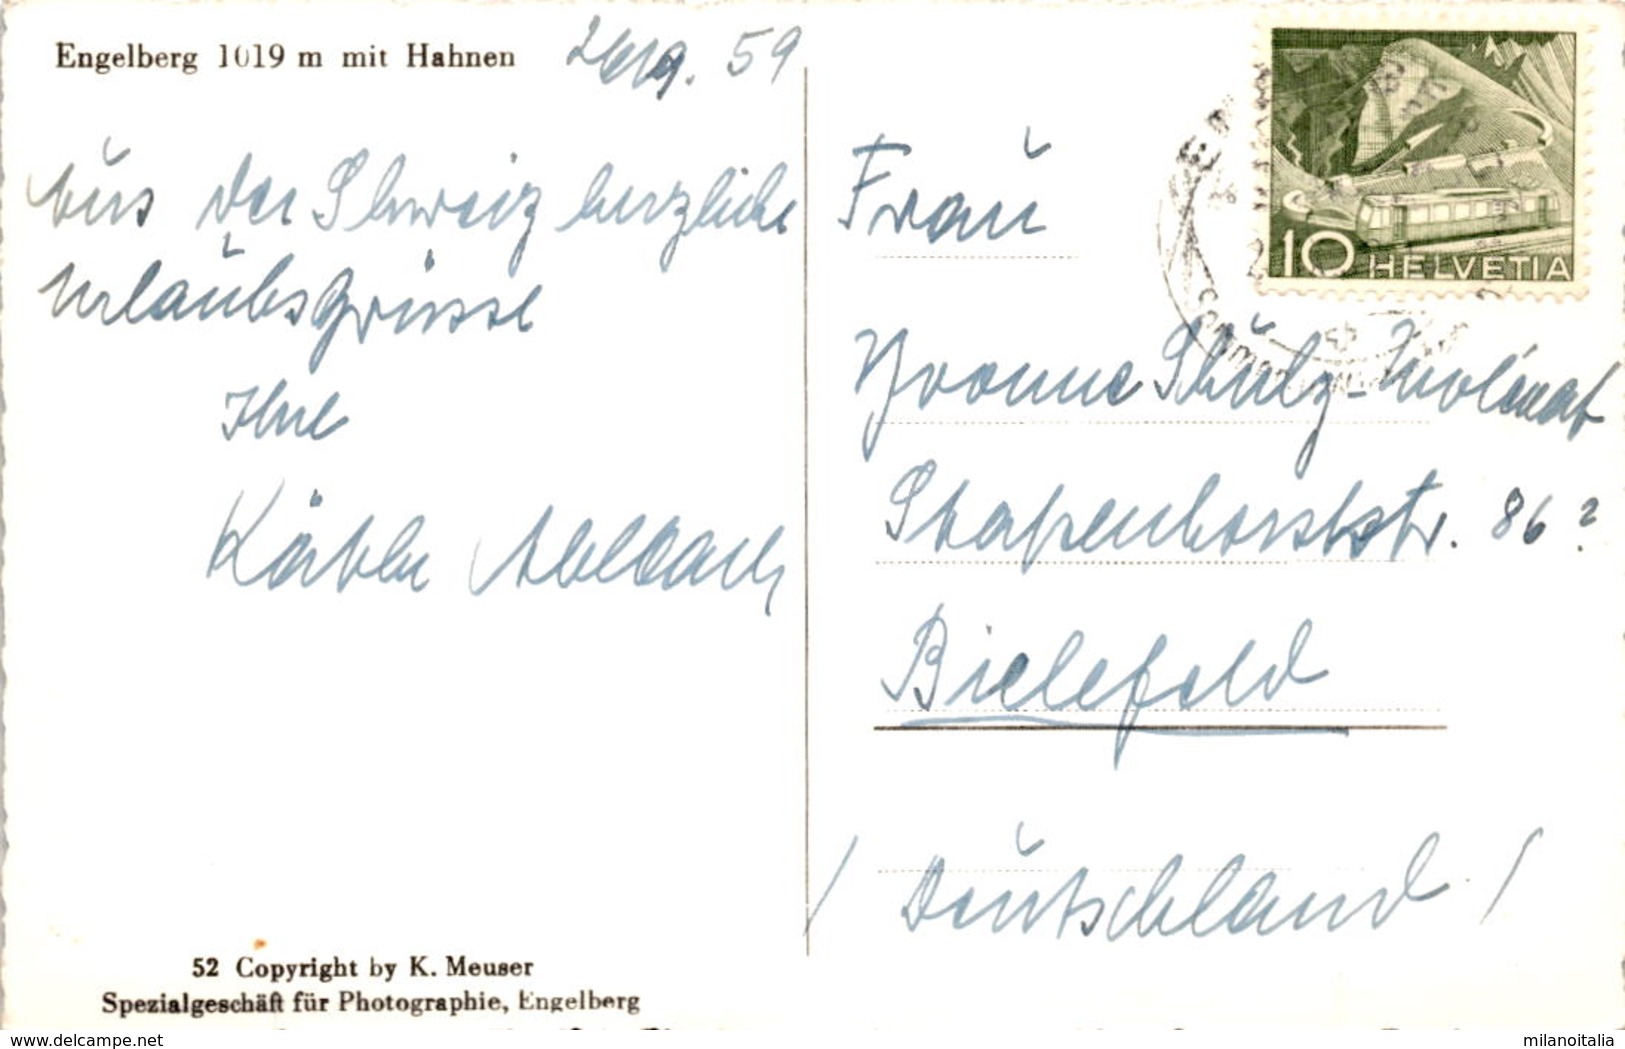 Engelberg 1019 m mit Hahnen
59
Aus der Schweiz herzliche
Urlaubsgrüsse
Ihre
Käthe
52 Copyright by K. Meuser
Spezialgeschäft für Photographie, Engelberg
10 HELVETIA
Frau
Yvonne Schulz-
Stapenhorststr. 86?
Bielefeld
/ Deutschland /
delcampe.net
milanoitalia